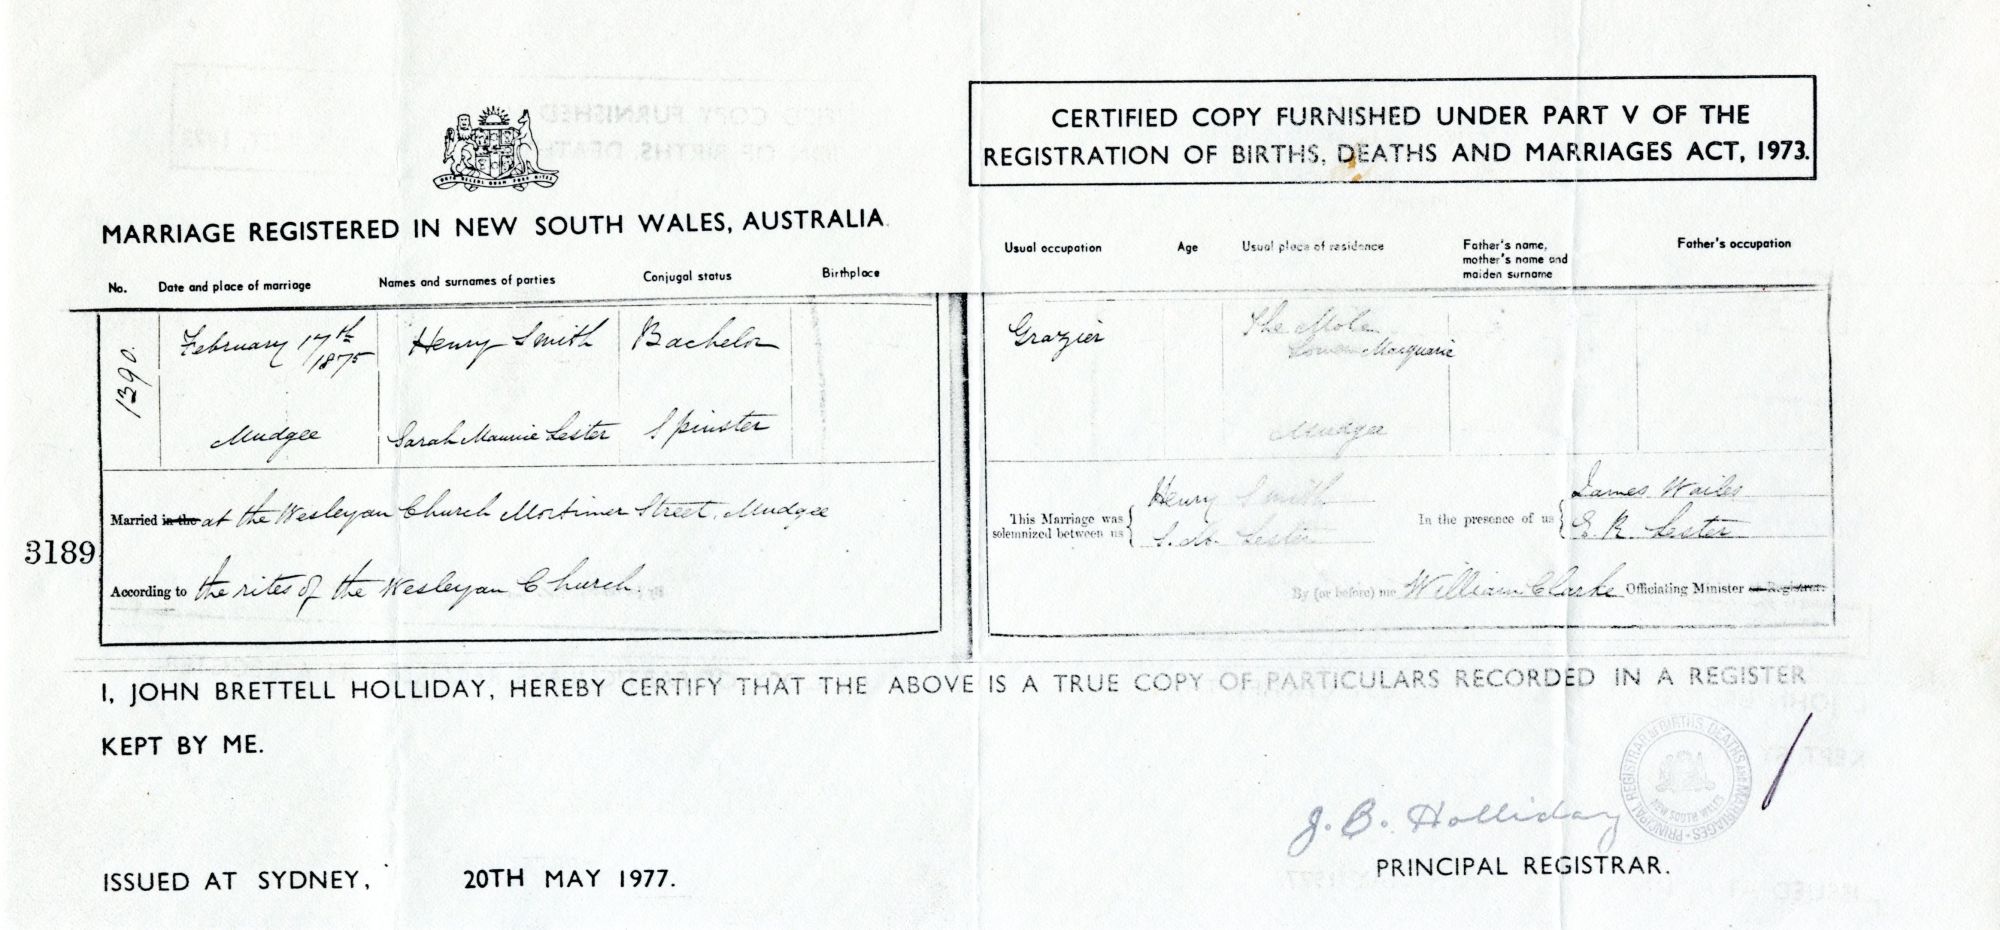 CERTIFIED COPY FURNISHED UNDER PART V OF THE
REGISTRATION OF BIRTHS, DEATHS AND MARRIAGES ACT, 1973.
MARRIAGE REGISTERED IN NEW SOUTH WALES, AUSTRALIA
No. Date and place of marriage Names and surnames of parties Conjugal status Birthplace Usual occupation Age Usual place of residence Father's name, Father's occupation
mother's name and
maiden surname
1390. February 17th Henry Smith Bachelor Grazier The Mole
1875 Lower Macquarie
Mudgee Sarah Lester Spinster Mudgee
Married in the at the Wesleyan Church Mortimer Street, Mudgee
3189
According to the rites of the Wesleyan Church.
This Marriage was
solemnized between us
Henry Smith
S. M. Lester
In the presence of us
James Wailes
E. R. Lester
By (or before) me William Clarke Officiating Minister or Registrar.
I, JOHN BRETTELL HOLLIDAY, HEREBY CERTIFY THAT THE ABOVE IS A TRUE COPY OF PARTICULARS RECORDED IN A REGISTER
KEPT BY ME.
PRINCIPAL REGISTRAR OF BIRTHS DEATHS AND MARRIAGES
NEW SOUTH WALES
J. B. Holliday
PRINCIPAL REGISTRAR.
ISSUED AT SYDNEY, 20TH MAY 1977.